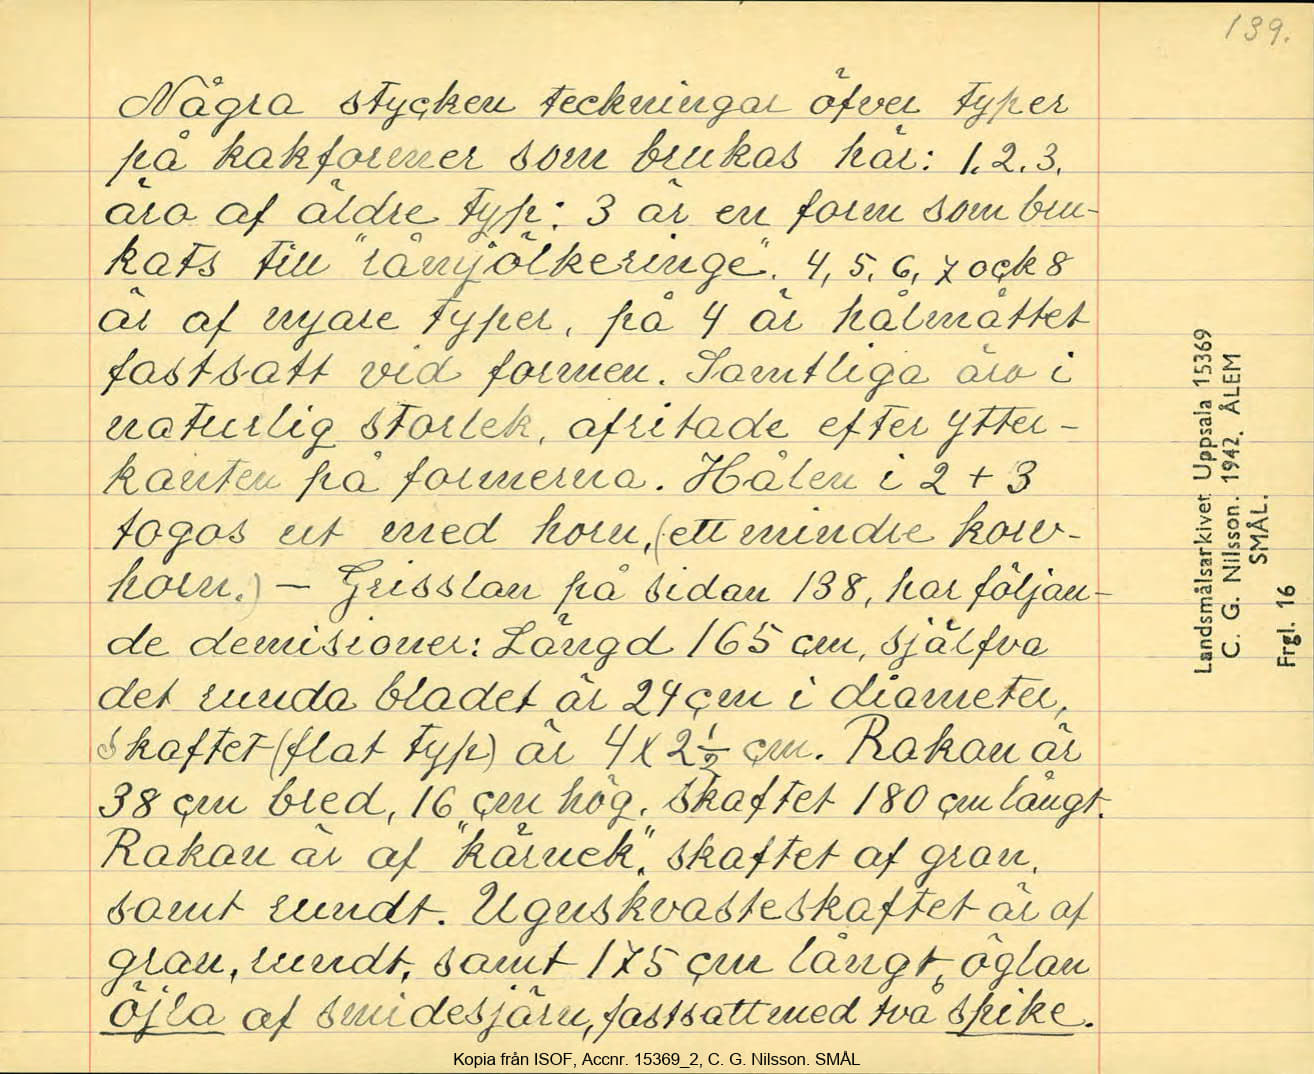 139.
Några stycken teckningar öfver typer
på kakformer som brukas här: 1. 2. 3.
äro af äldre typ: 3 är en form som bru-
kats till "råmjölkeringe". 4, 5, 6, 7 och 8
är af nyare typer, på 4 är hålmåttet
fastsatt vid formen. Samtliga äro i
naturlig storlek, afritade efter ytter-
kanten på formerna. Hålen i 2 + 3
togos ut med horn, (ett mindre korv-
horn.) — Grisslan på sidan 138, har följan-
de demisioner: Längd 165 cm, själfva
det runda bladet är 24 cm i diameter,
skaftet (flat typ) är 4 x 2 1/2 cm. Rakan är
38 cm bred, 16 cm hög, skaftet 180 cm långt.
Rakan är af "kärnek", skaftet af gran,
samt rundt. Ugnskvasteskaftet är af
gran, rundt, samt 175 cm långt, öglan
öjla af smidesjärn, fastsatt med två spike.
Landsmålsarkivet Uppsala 15369
C. G. Nilsson. 1942. ÅLEM
SMÅL.
Frgl. 16
Kopia från ISOF, Accnr. 15369_2, C. G. Nilsson. SMÅL